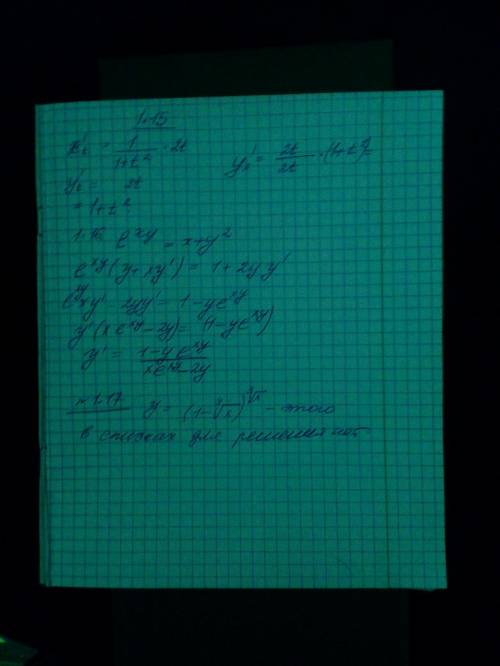 1.15
x't = 1/(1+t²) · 2t
y'x = 2t/2t · (1+t²) =
y't = 2t
= 1+t²
1.16 e^xy = x+y²
e^xy (y+xy') = 1+2yy'
e^xy xy' - 2yy' = 1-ye^xy
y'(xe^xy-2y) = (1-ye^xy)
y' = (1-ye^xy)/(xe^xy-2y)
№1.17 y = (1-∛x)^∛x - этого
в списках для решения нет